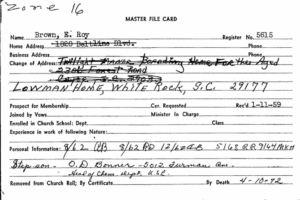 Zone 16
MASTER FILE CARD
Name Brown, E. Roy Register No. 5615
Home Address 1820 Beltline Blvd. Phone
Business Address Phone
Change of Address Twilight Manor Boarding Home For the Aged
2300 Forest Road
LOWMAN HOME, WHITE ROCK, S.C. 29177
Prospect for Membership Cor. Requested Rec'd 1-11-59
Joined by Vows Minister in Charge
Enrolled in Church School: Dept. Class
Experience in work of following Nature:
Personal Information: 8/62
Step-son - O.D. Bonner - 3012
Removed from Church Roll: By Certificate By Death 4-10-92